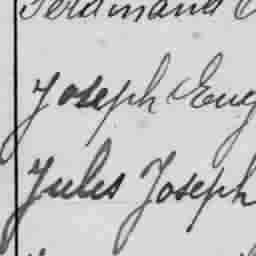 Ferdinand
Joseph Eug
Jules Joseph